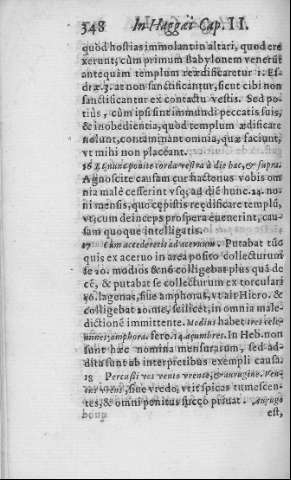 548 In Haggæi Cap. II.
quòd hostias immolant in altari, quod ere
xerunt, cùm primum Babylonem venerũt
antequàm templum reædificaretur 1. Es-
dræ.3. at non sanctificantur, sicut cibi non
sanctificantur ex contactu vestis. Sed po-
tiùs, cùm ipsi sint immundi peccatis suis,
& inobedientia, quòd templum ædificare
nolunt, contaminant omnia, quæ faciunt,
vt mihi non placeant.
16 Et nunc ponite corda vestra à die hac, & supra.
Agnoscite causam cur hactenus vobis om
nia malè cesserint vsq; ad diẽ hunc. 24. no-
ni mensis, quo cœpistis reædificare templũ,
vt, cum deinceps prospera euenerint, cau-
sam quoque intelligatis.
17 Cùm accederetis ad aceruum. Putabat tũc
quis ex aceruo in area posito collecturum
se 20. modios & nõ colligebat plus quã de
cẽ, & putabat se collecturum ex torculari
50. lagenas, siue amphoras, vt ait Hiero. &
colligebat 20. me, scilicet, in omnia male-
dictionẽ immittente. Modius habet
amphora. fere. 14. In Heb. non
sunt hæc nomina mensurarum, sed ad-
dita sunt ab interpretibus exempli causa.
18 Percussi vos vento vrente, & aurugine. Ven-
tus vrens, siue vredo, vrit spicas tumescen-
tes, & omni penitus succo priuat. Aurugo
est,